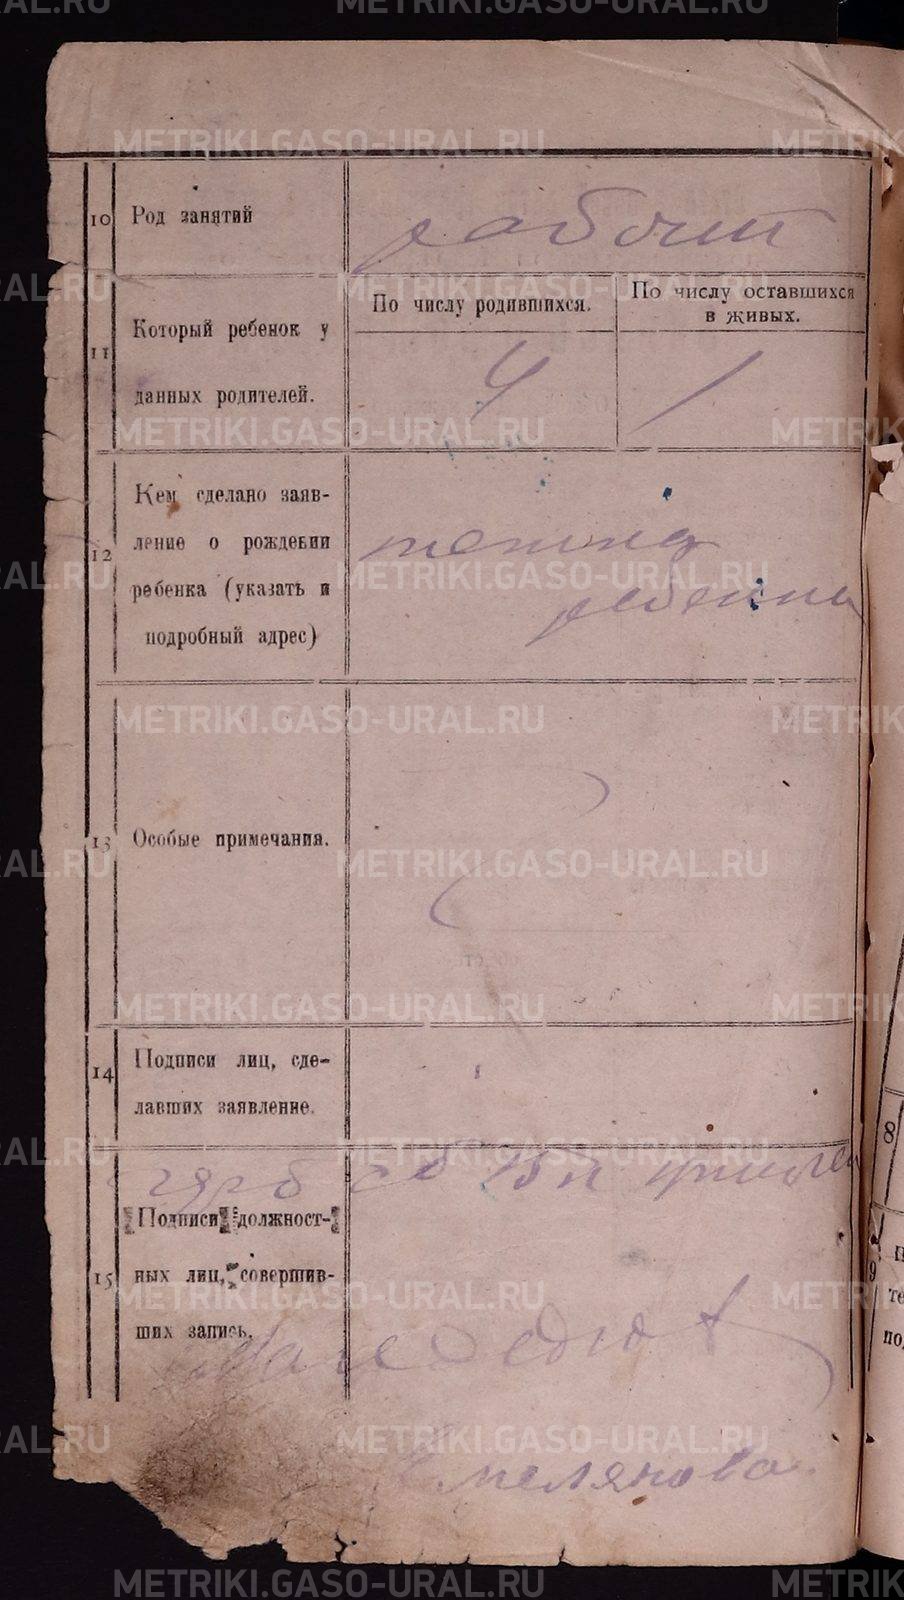 METRIKI.GASO-URAL.RU
10 Род занятий
рабочий
11 Который ребенок у
данных родителей.
По числу родившихся.
По числу оставшихся
в живых.
4
1
12 Кем сделано заяв-
ление о рождении
ребенка (указать и
подробный адрес)
ребенка
13 Особые примечания.
14 Подписи лиц, сде-
лавших заявление.
15 Подписи должност-
ных лиц, совершив-
ших запись.
Емелянова
8
9